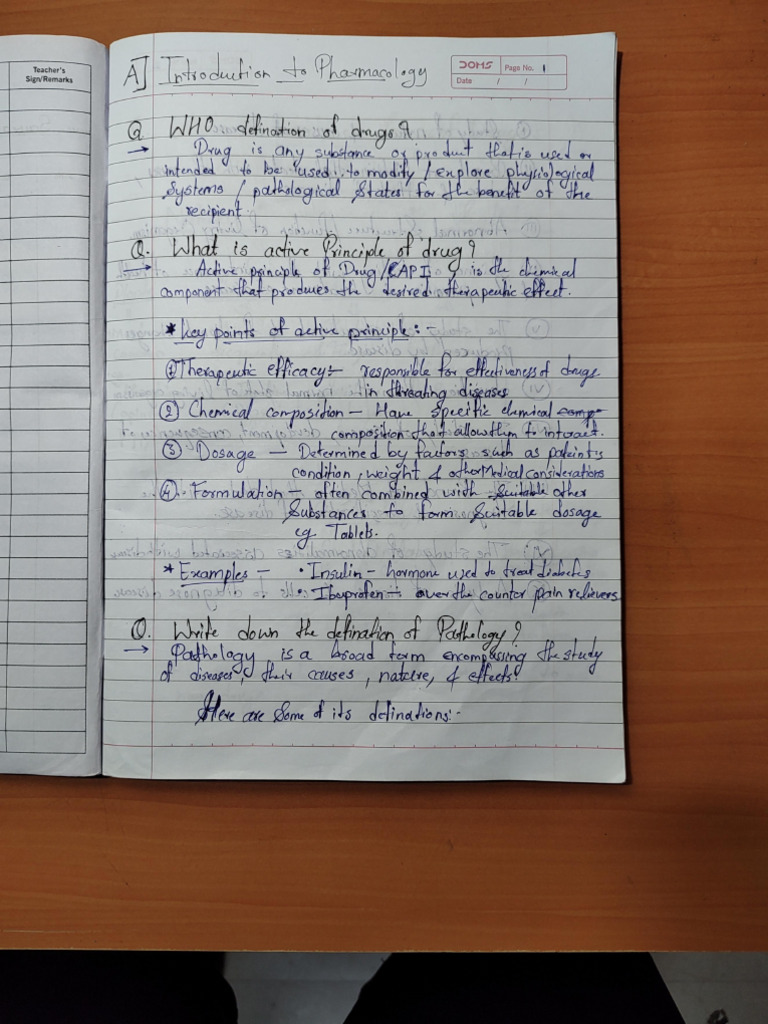 Teacher's
Sign/Remarks
DOMS Page No. 1
Date / /
A] Introduction to Pharmacology
Q. WHO defination of drugs?
→ Drug is any substance or product that is used or
intended to be used to modify / explore physiological
systems / pathological states for the benefit of the
recipient.
Q. What is active Principle of drug?
→ Active principle of Drug / (API) is the chemical
component that produces the desired therapeutic effect.
* Key points of active principle: -
① Therapeutic efficacy:- responsible for effectiveness of drugs
in threating diseases
② Chemical composition - Have specific chemical comp
composition that allow them to interact.
③ Dosage - Determined by factors such as patient's
condition, weight & other Medical considerations
④ Formulation - often combined with suitable other
substances to form suitable dosage
eg Tablets.
* Examples - • Insulin - hormone used to treat diabetes
• Ibuprofen - over the counter pain relievers
Q. Write down the defination of Pathology?
→ Pathology is a broad term encompassing the study
of diseases, their causes, nature, & effects.
Here are some of its definations:-